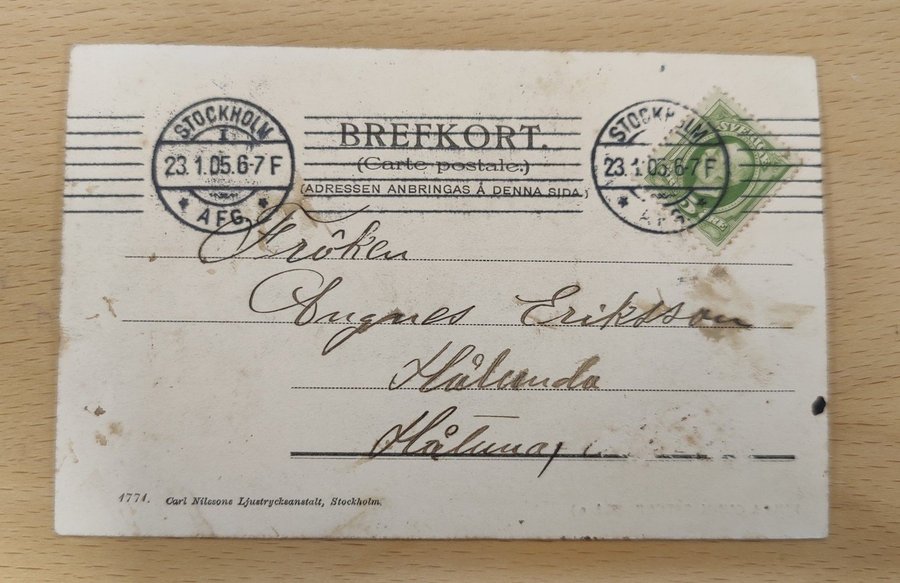 STOCKHOLM
1
23.1.05.6-7 F
AFG.
BREFKORT.
(Carte postale.)
(ADRESSEN ANBRINGAS Å DENNA SIDA.)
STOCKHOLM
23.1.05.6-7 F
AFG.
SVERIGE
Fröken
Angnes Eriksson
Hålunda
Håtuna
1771. Carl Nilssons Ljustrycksanstalt, Stockholm.